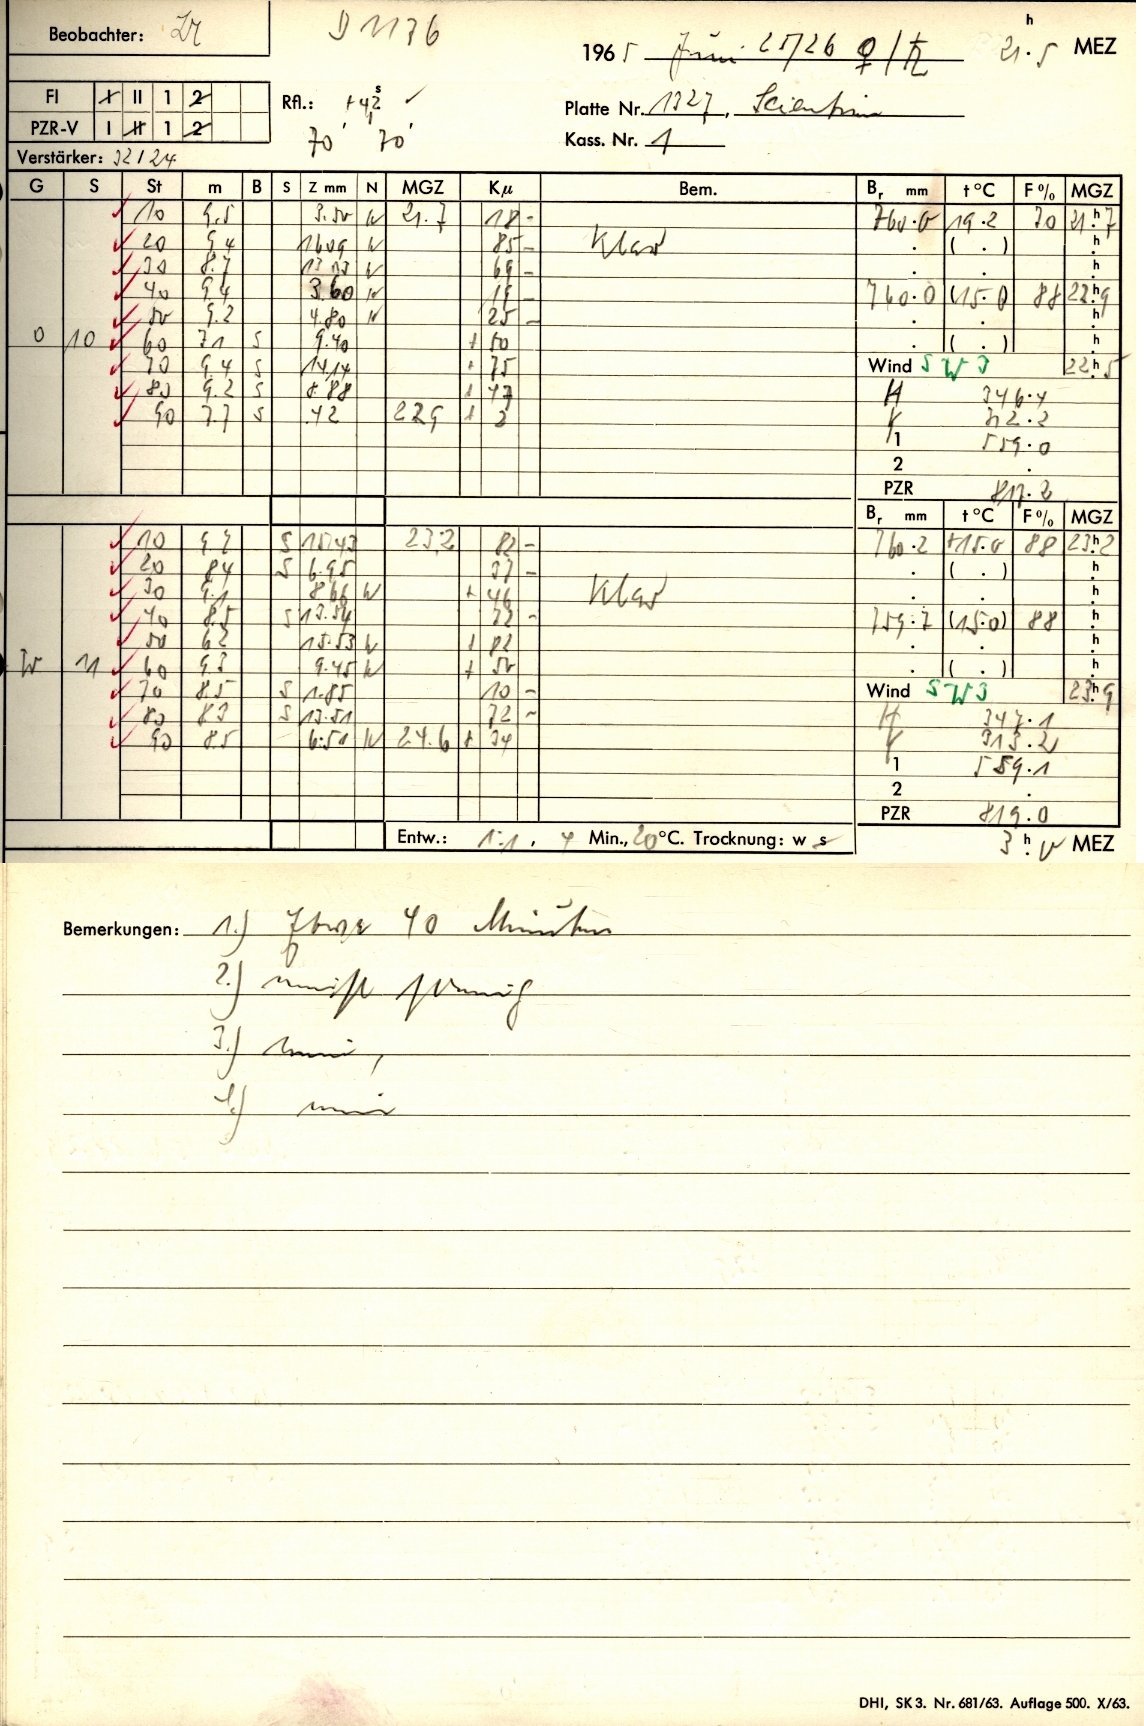 Beobachter: Zr D 1136 h
1965 Juni 25/26 ♀/♄ 21.5 MEZ
FI I II 1 2 Rfl.: +42 s ✓ Platte Nr. 1327, Scientia
PZR-V I II 1 2 70' 70' Kass. Nr. 1
Verstärker: 32/24
G S St m B S Z mm N MGZ Kμ Bem. Br mm t °C F % MGZ
10 9.5 3.50 N 21.7 18 - 760.0 19.2 70 21h.7
20 9.4 16.09 N 85 - Klar . ( . ) h.
30 8.7 13.13 N 69 - . . h.
40 9.4 3.60 N 19 - 760.0 (15.0) 88 22h.9
50 9.2 4.80 N 25 - . . h.
0 10 60 7.1 S 9.40 + 50 . ( . ) h.
70 9.4 S 14.14 + 75 Wind SW 3 22h.5
80 9.2 S 8.88 + 47 H 346.4
90 7.7 S .42 22.9 + 2 V 312.2
1 559.0
2 .
PZR 817.2
Br mm t °C F % MGZ
10 9.2 S 15.43 23.2 82 - 760.2 +15.0 88 23h.2
20 8.4 S 6.95 37 - . ( . ) h.
30 9.1 8.66 N + 46 Klar . . h.
40 8.5 S 13.54 72 - 759.7 (15.0) 88 h.
50 6.2 15.53 N + 82 . . h.
W 11 60 9.3 9.45 N + 50 . ( . ) h.
70 8.5 S 1.85 10 - Wind SW 3 23h.9
80 8.3 S 13.51 72 - H 347.1
90 8.5 6.51 N 24.6 + 34 V 313.2
1 559.1
2 .
PZR 819.0
Entw.: 1:1, 4 Min., 20°C. Trocknung: w s 3h.0 MEZ
Bemerkungen: 1.) 40 Minuten
2.)
3.)
4.)
DHI, SK 3. Nr. 681/63. Auflage 500. X/63.